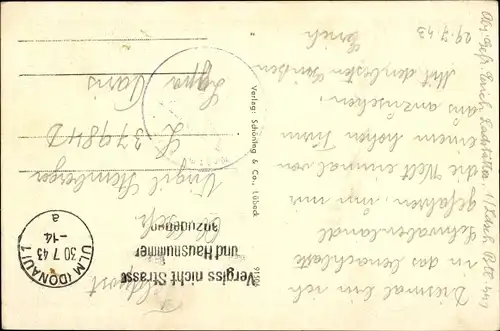 Diesmal bin ich
in das benachbarte
Schwabenland
gefahren, um mir
die Welt einmal von
einem hohen Turm
aus anzusehen.
Mit den besten Grüßen
Erich
29.7.43
Verlag: Schöning & Co., Lübeck
Feldpost
Vergiss nicht Strasse
und Hausnummer
anzugeben
ULM (DONAU) 1
30 7 43
-14
a
Virgil
L 37984 D
Lgpa
Paris